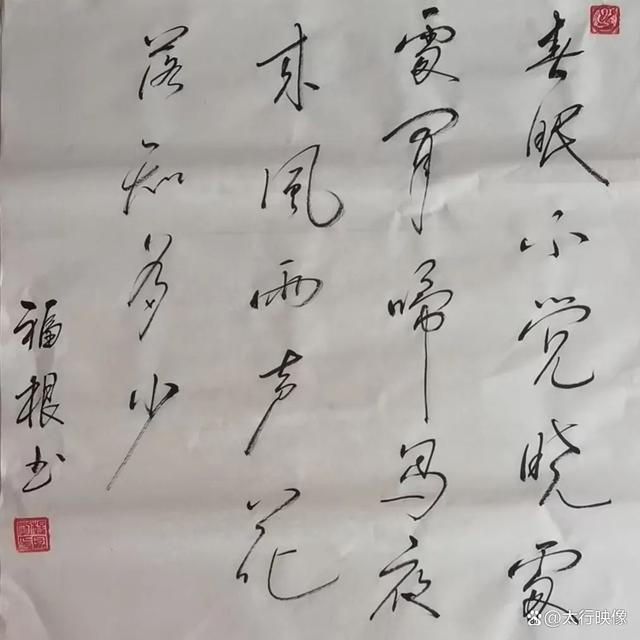 春眠不觉晓處
處闻啼鸟夜
来风雨声花
落知多少
福根书
太行映像